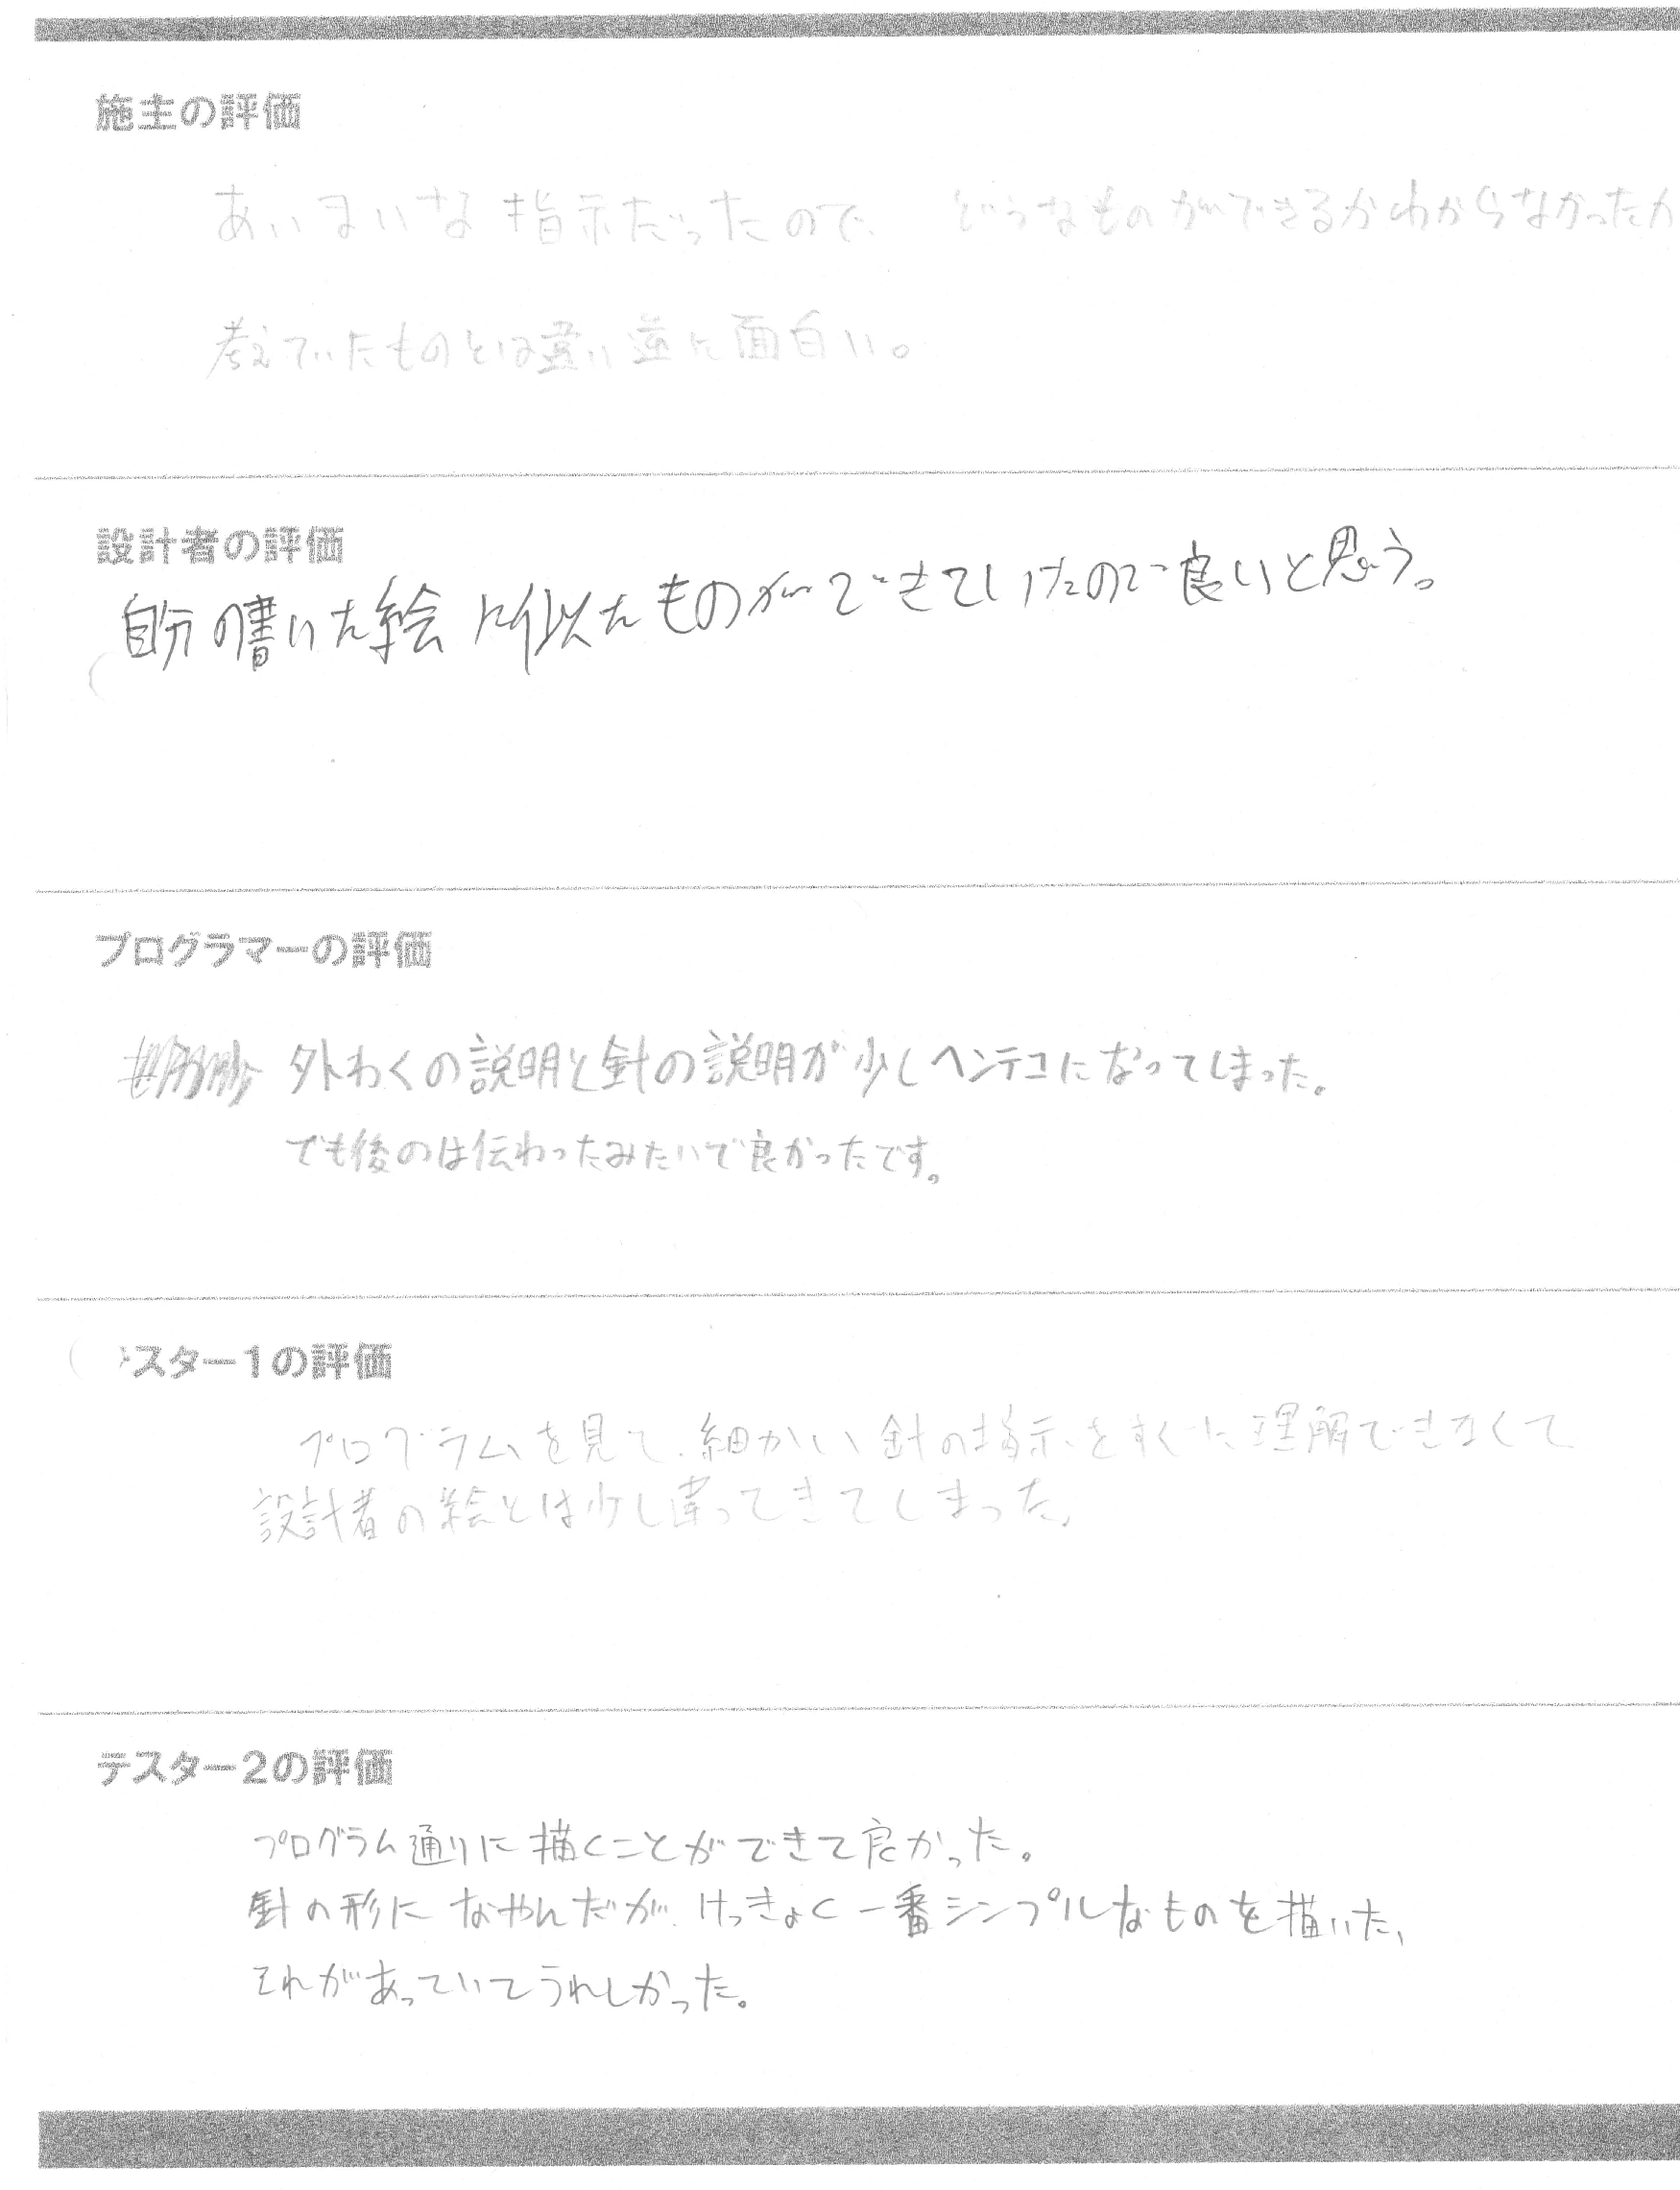 施主の評価
あいまいな指示だったので、どうなものができるかわからなかったが
考えていたものとは違い逆に面白い。
設計者の評価
自分の書いた絵に似たものができていたので良いと思う。
プログラマーの評価
外わくの説明と針の説明が少しヘンテコになってしまった。
でも後のは伝わったみたいで良かったです。
スター1の評価
プログラムを見て、細かい針の指示をすぐに理解できなくて
設計者の絵とは少し違ってきてしまった。
テスター2の評価
プログラム通りに描くことができて良かった。
針の形になやんだが、けっきょく一番シンプルなものを描いた、
それがあっていてうれしかった。